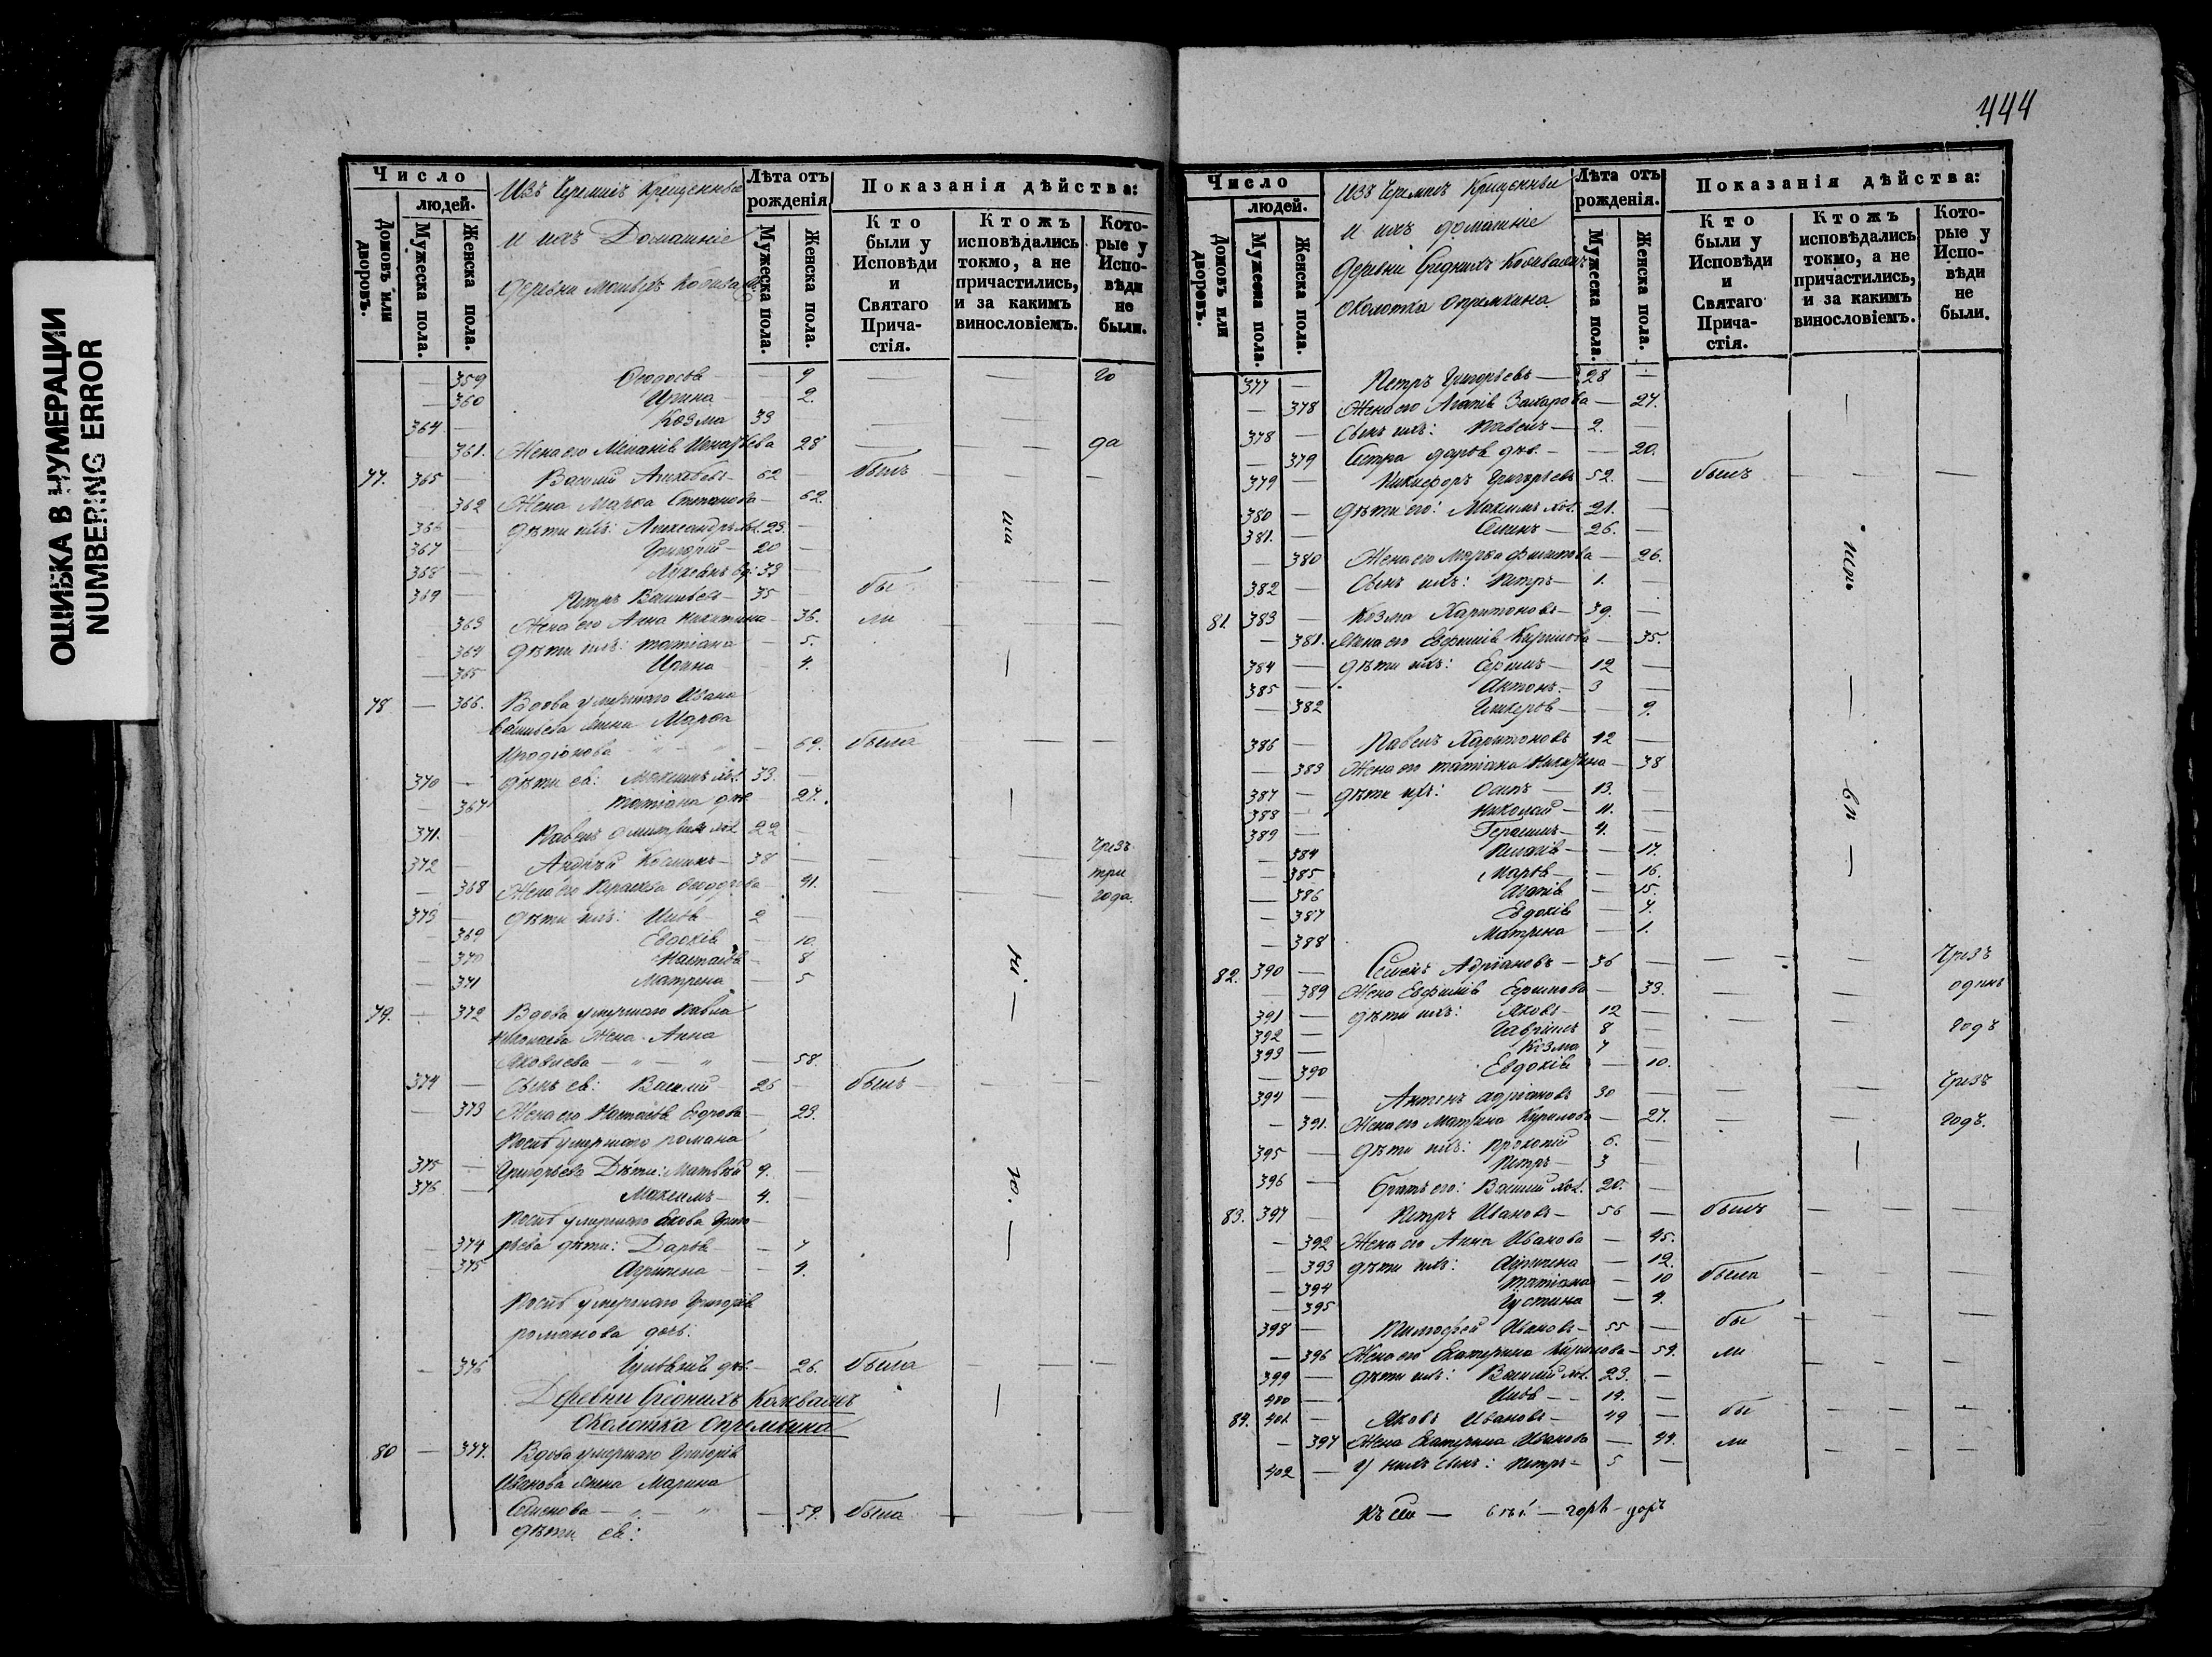 ОШИБКА В НУМЕРАЦИИ
NUMBERING ERROR
444
Число
людей.
Домовъ или дворовъ.
Мужеска пола.
Женска пола.
Изъ Черемисъ Крещенныя
и ихъ Домашніе
Деревни
Лѣта отъ рожденія
Мужеска пола.
Женска пола.
Показанія дѣйства:
Кто были у Исповѣди и Святаго Причастія.
Ктожъ исповѣдались токмо, а не причастились, и за какимъ винословіемъ.
Которые у Исповѣди не были.
359 9 го
360 Ирина 2.
364 Козма 33
361. Жена его 28 да
77. 365 Василий 62 былъ
362 Жена Марфа Степанова 62
366 Дѣти ихъ: Александръ хол. 23.
367 Григорій 20
368 33
369 Петръ Васильевъ 35 бы
363 Жена его Анна Никитина 36. ли
364 дѣти ихъ: татіана 5.
365 Ирина 4.
78 366. Вдова умершаго Ивана
Васильева жена Марфа
Иродіонова 69. была
370 дѣти ея: Максимъ хол. 33.
367 татіана дѣв. 27.
371. Павелъ хол. 22
Чрезъ
372 Андрей Козминъ 38
три
368 Жена его 41.
года.
373 дѣти ихъ: Илья 2
369 Евдокія 10.
370 Настасья 8
371 Матрена 5
79. 372 Вдова умершаго Павла
Николаева Жена Анна
Яковлева 58.
374 Сынъ ея: Василій 25 былъ
373 Жена его Настасья Егорова 23.
Послѣ умершаго романа
375 Григорьева Дѣти: Матвѣй 9.
376 Максимъ 4.
Послѣ умершаго Якова Григо-
374 рьева дѣти: Дарья 7
375 Агрипена 4.
Послѣ умершаго Григорія
романова дочь:
376 дѣв. 26. была
Деревни Среднихъ
Околотка
80 377. Вдова умершаго Григорія
Иванова жена Марина
Семенова 59. была
дѣти ея:
Число
людей.
Домовъ или дворовъ.
Мужеска пола.
Женска пола.
Изъ Черемисъ Крещенныи
и ихъ домашніе
Деревни Среднихъ
околотка
Лѣта отъ рожденія.
Мужеска пола.
Женска пола.
Показанія дѣйства:
Кто были у Исповѣди и Святаго Причастія.
Ктожъ исповѣдались токмо, а не причастились, и за какимъ винословіемъ.
Которые у Исповѣди не были.
377 Петръ Григорьевъ 28
378 Жена его Агапія Захарова 27.
378 Сынъ ихъ: Павелъ 2.
379 Сестра дарья дѣв. 20.
379 Никифоръ Григорьевъ 52. былъ
380 дѣти его: Максимъ хол. 21.
381. 26.
380 Жена его Марфа Филипова 26.
382 Сынъ ихъ: Петръ 1.
81. 383 Козма Харитоновъ 39.
381. Жена его Евфимія Кирилова 35.
384 дѣти ихъ: 12
385 Антонъ 3
382 9.
386 Павелъ Харитоновъ 42
383 Жена его татіана Никитина 38
387 дѣти ихъ: Осипъ 13.
388 Николай 11.
389 Герасимъ 4.
384 Пелагія 17.
385 Марья 16.
386 Агапія 15.
387 Евдокія 7.
388 Матрена 1.
82. 390 Семенъ Адріановъ 36 Чрезъ
389 Жена Евфимія 33. одинъ
391 дѣти ихъ: Яковъ 12
392 Гаврилъ 8 годъ
393 Козма 7
390 Евдокія 10.
394 Антонъ Адріановъ 30 Чрезъ
391. Жена его Матрена Кирилова 27. годъ.
395 дѣти ихъ: Прокопій 6.
Петръ 3
396 братъ его: Василій хол. 20.
83. 397 Петръ Ивановъ 56 былъ
392 Жена его Анна Иванова 45.
393 дѣти ихъ: Агрипена 12.
394 татіана 10 была
395 Іустина 4.
398 Тимофей Ивановъ 55 бы
396 Жена его Екатерина Кирилова 59. ли
399 дѣти ихъ: Василій хол. 23.
400 Илья 19.
84. 401 Яковъ Ивановъ 49 бы
397 Жена Екатерина Иванова 44. ли
402 У нихъ сынъ: Петръ 5